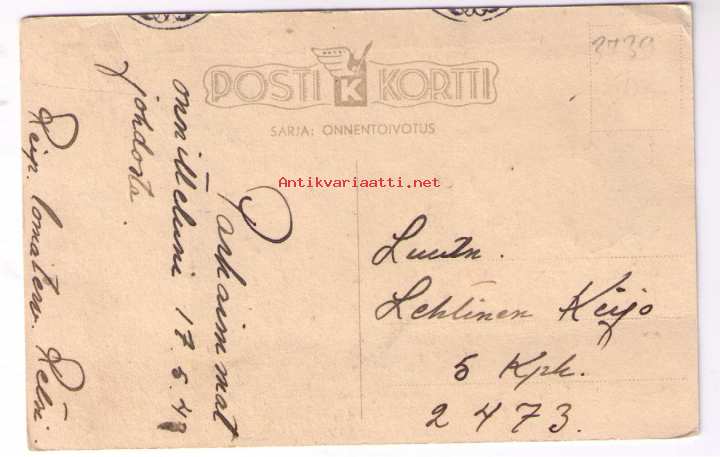 2739
POSTI K KORTTI
SARJA: ONNENTOIVOTUS
Antikvariaatti.net
Parhaimmat
onnitteluni 17.5.43
johdosta.
Reip.
Luutn.
Lehtinen Keijo
5 Kpk.
2473.